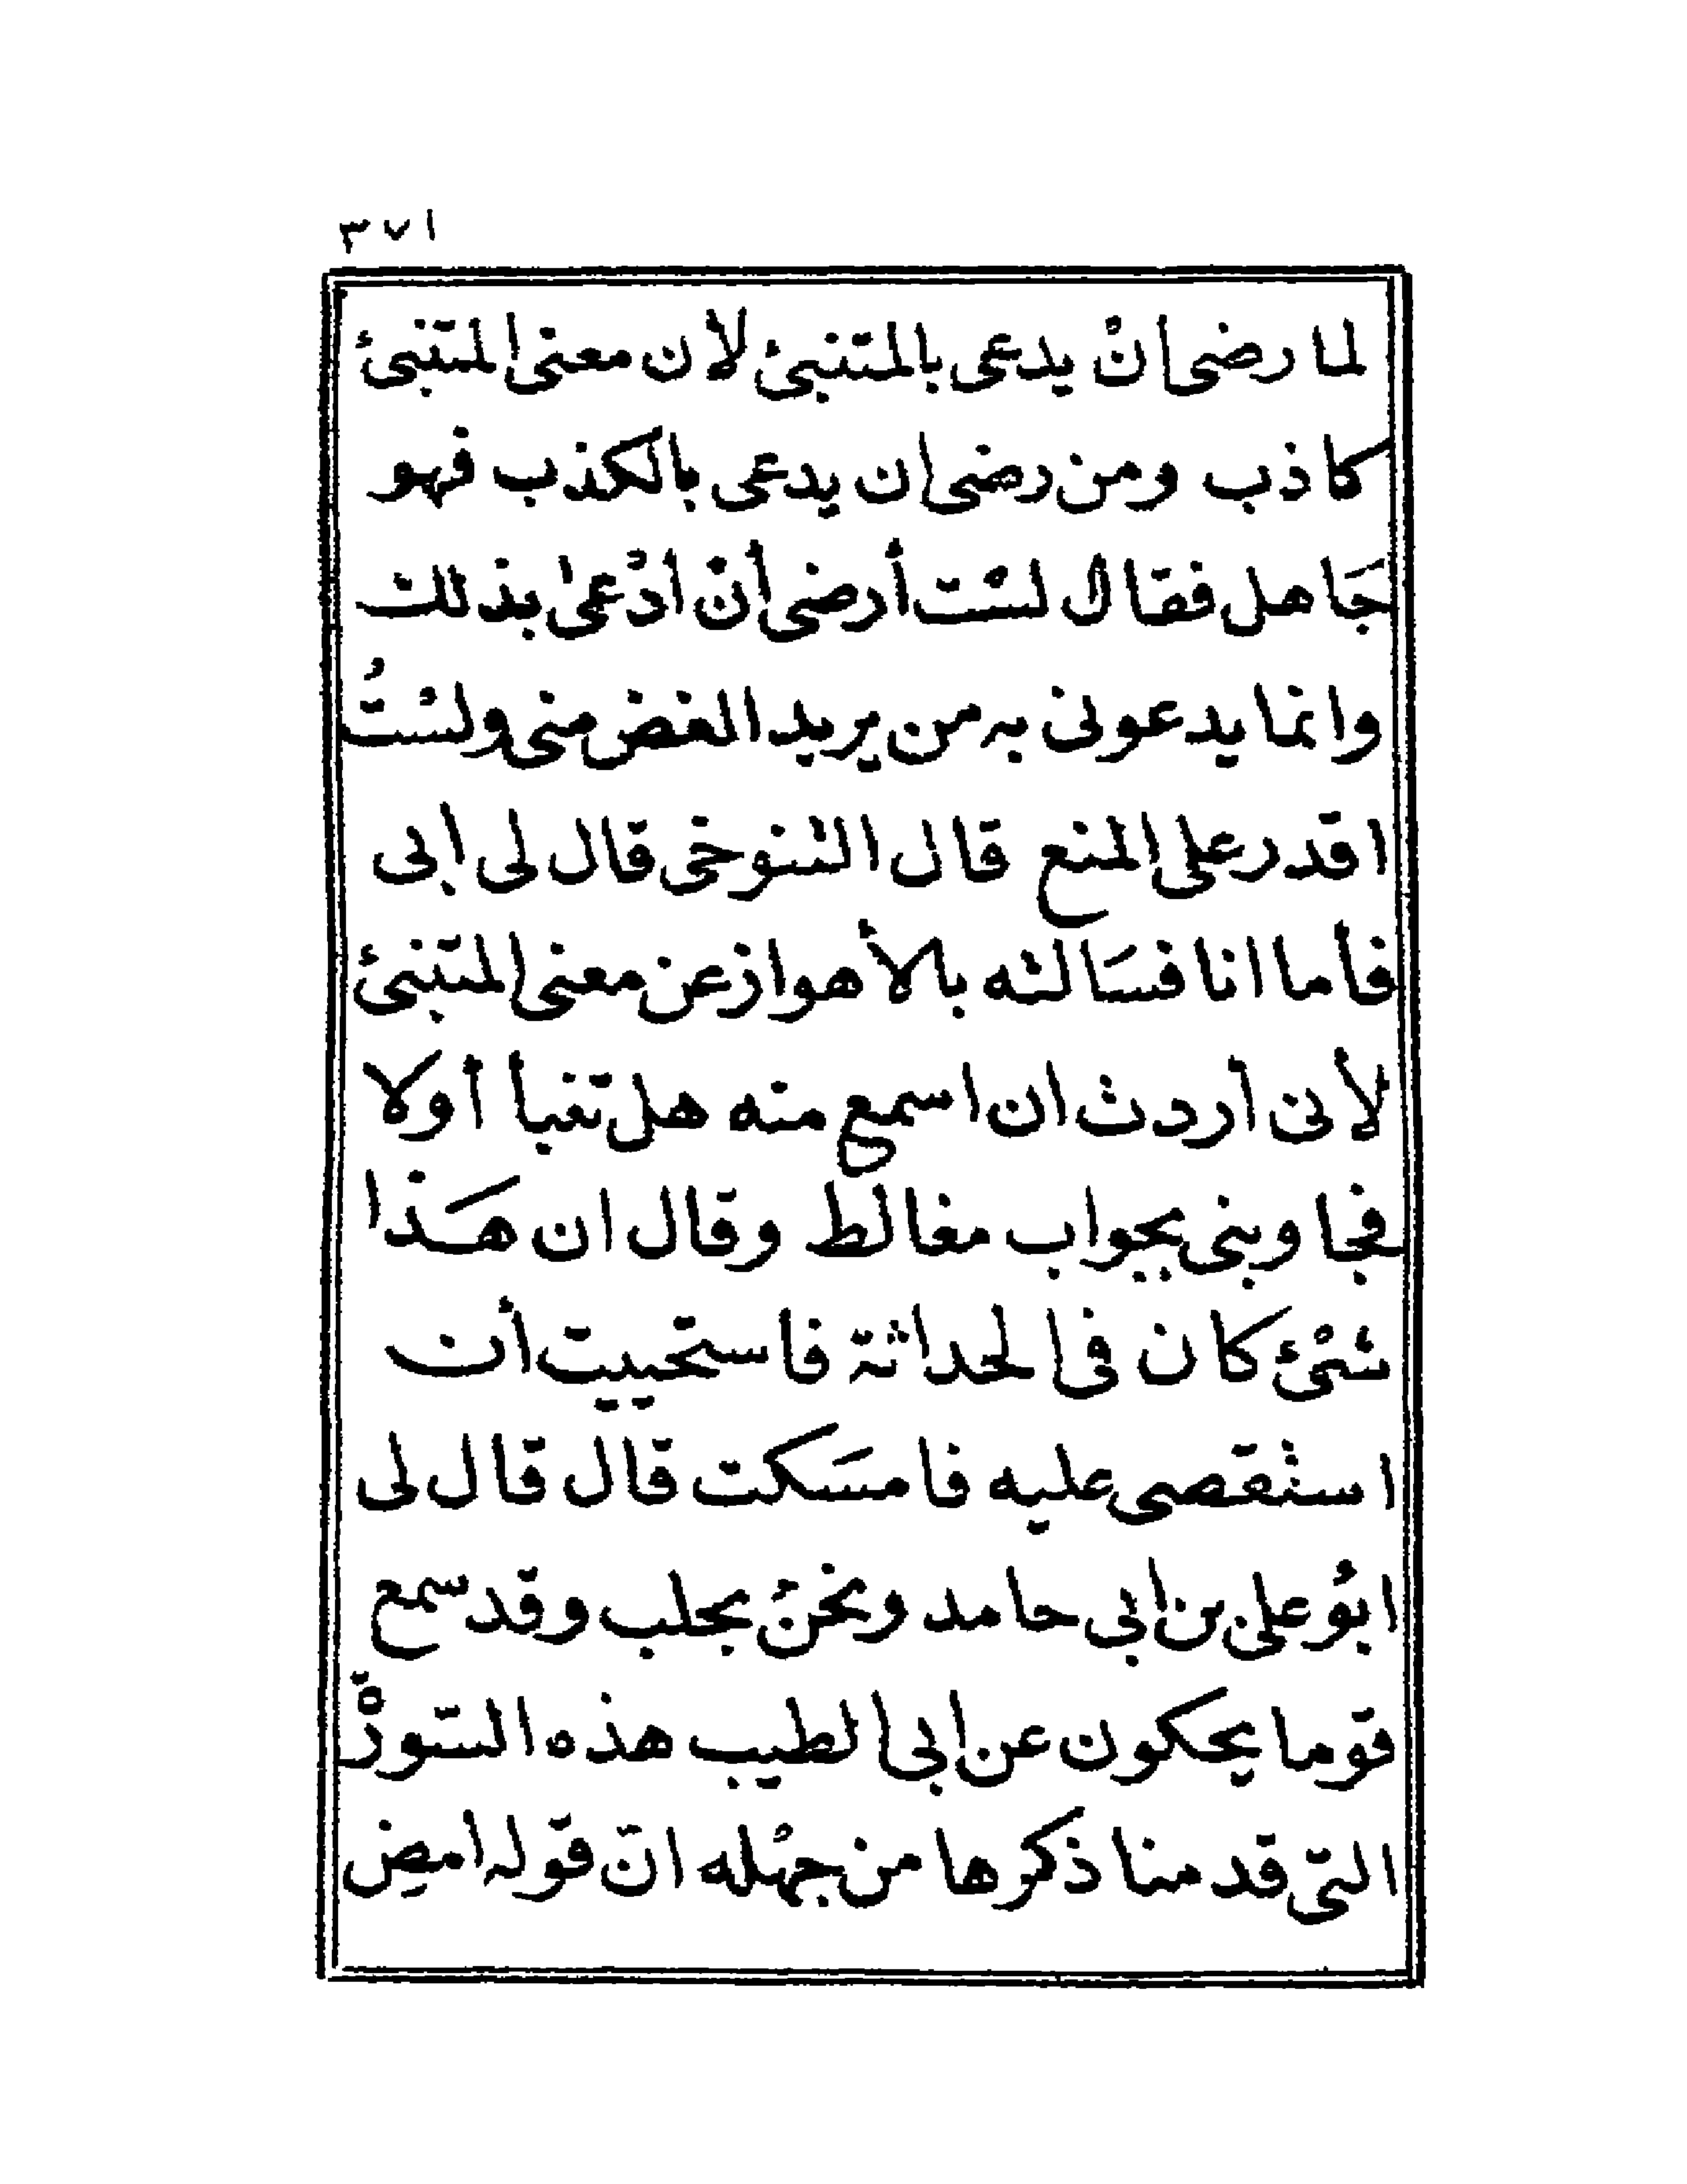 ٣٧١
لما رضى انْ يدعى بالمتنبئ لأن معنى المتنبئ
كاذب ومن رضى ان يدعى بالكذب فهو
جَاهل فقال لسْت أرضى أنْ أدْعىٰ بذلك
وانما يدعونى به من يريد الغض منى ولسْتُ
اقدر على المنع قال التنوخى قال لى ابى
فأما انا فسَالته بالأهواز عن معنى المتنبئ
لأنى أردت ان اسمع منه هل تنبأ أولا
فجاوبنى بجواب مغالط وقال ان هَذا
شىْئ كان فى الحداثة فاستحييت أن
استقصى عليه فامسَكت قال قال لى
ابُو على بن ابى حامد ونحنُ بحلب وقد سمع
قوما يحكون عن ابى الطيب هذه السّورْة
التى قد منا ذكرها من جهْله انّ قوله امضِ